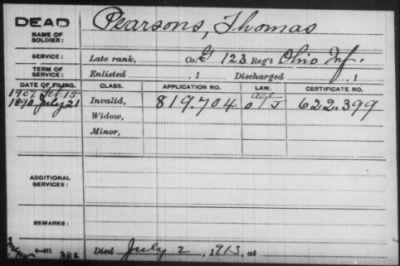 DEAD
NAME OF SOLDIER:
Pearsons, Thomas
SERVICE:
Late rank,
Co. G 123 Reg't Ohio Inf.
TERM OF SERVICE:
Enlisted , 1
Discharged , 1
DATE OF FILING.
CLASS.
APPLICATION NO.
LAW.
CERTIFICATE NO.
1890 July 21
Invalid,
819.704
622.399
Widow,
Minor,
ADDITIONAL SERVICES:
REMARKS:
Died July 2, 1913, at